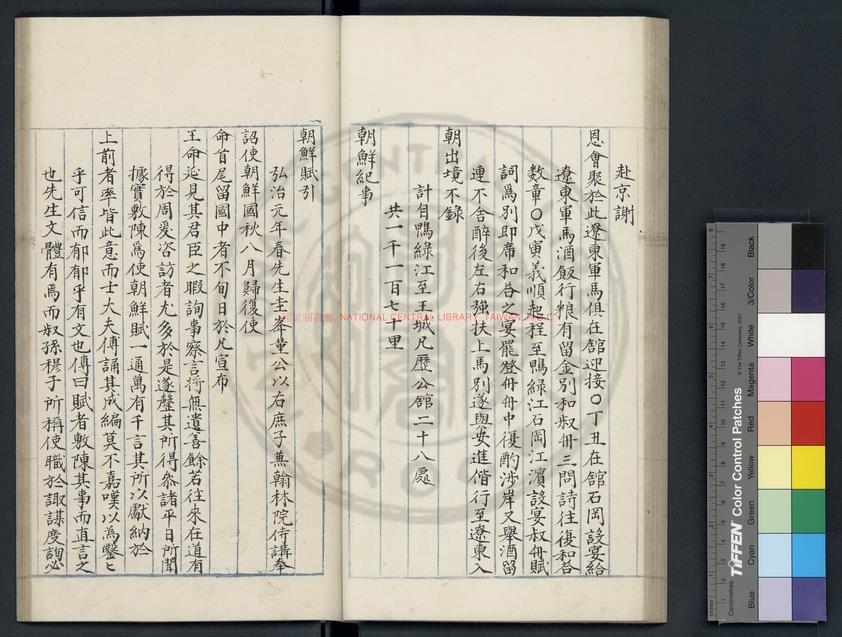 赴京謝
恩會聚於此遼東軍馬俱在舘迎接○丁丑在舘石岡設宴給
遼東軍馬酒飯行粮有留金別和叔卅三問詩往復和荅
數章○戊寅義順起程至鴨綠江石岡江濱設宴叔卅賦
詞爲別即席和荅之宴罷登舟舟中復酌涉岸又舉酒留
連不舍醉後左右強扶上馬別遂與安進偕行至遼東入
朝出境不錄
計自鴨綠江至王城凡歷公舘二十八處
共一千一百七十里
朝鮮紀事
朝鮮賦引
弘治元年春先生圭峯董公以右庶子兼翰林院侍講奉
詔使朝鮮國秋八月歸復使
命首尾留國中者不旬日於凡宣布
王命延見其君臣之暇詢事察言將無遺善餘若往來在道有
得於周爰咨訪者尤多於是遂罄其所得叅諸平日所聞
據實敷陳爲使朝鮮賦一通萬有千言其所以獻納於
上前者率皆此意而士大夫傳誦其成編莫不嘉嘆以爲鑿鑿
乎可信而郁郁乎有文也傳曰賦者敷陳其事而直言之
也先生文體有焉而叔孫穆子所稱使職於諏謀度詢必
國家圖書館 NATIONAL CENTRAL LIBRARY, TAIWAN, R.O.C
Centimetres
Inches
TIFFEN Color Control Patches
© The Tiffen Company, 2007
Blue
Cyan
Green
Yellow
Red
Magenta
White
3/Color
Black